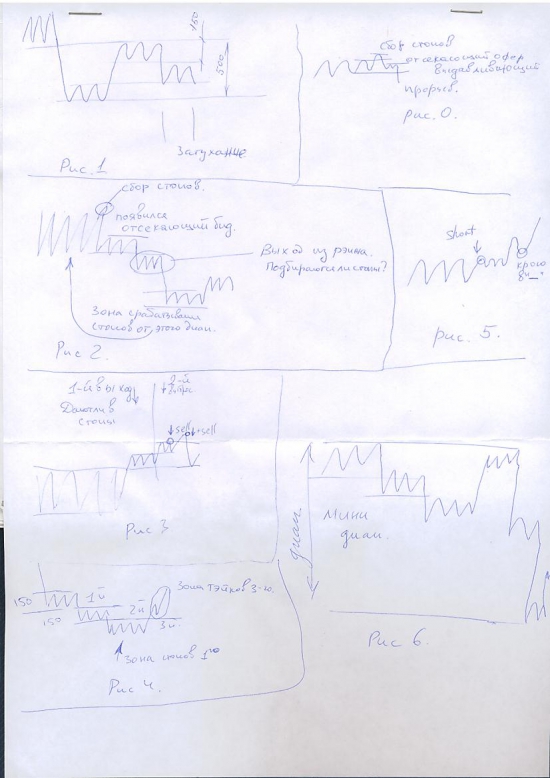 150
500
Затухание
Рис. 1
сбор стопов
отсекающий офер
выдавливающий
прорыв.
рис. 0.
сбор стопов.
появился
отсекающий бид.
Выход из рэнжа.
Подбираются ли стопы?
Зона срабатывания
стопов от этого диап.
Рис 2.
short
крою
в "—"
рис. 5.
1-й выход
2-й
стопы
sell
sell
Рис 3
диап.
мини
диап.
Рис 6.
150
1й
150
2й
3й
Зона тэйков 3-го.
Зона стопов 1го
Рис 4.